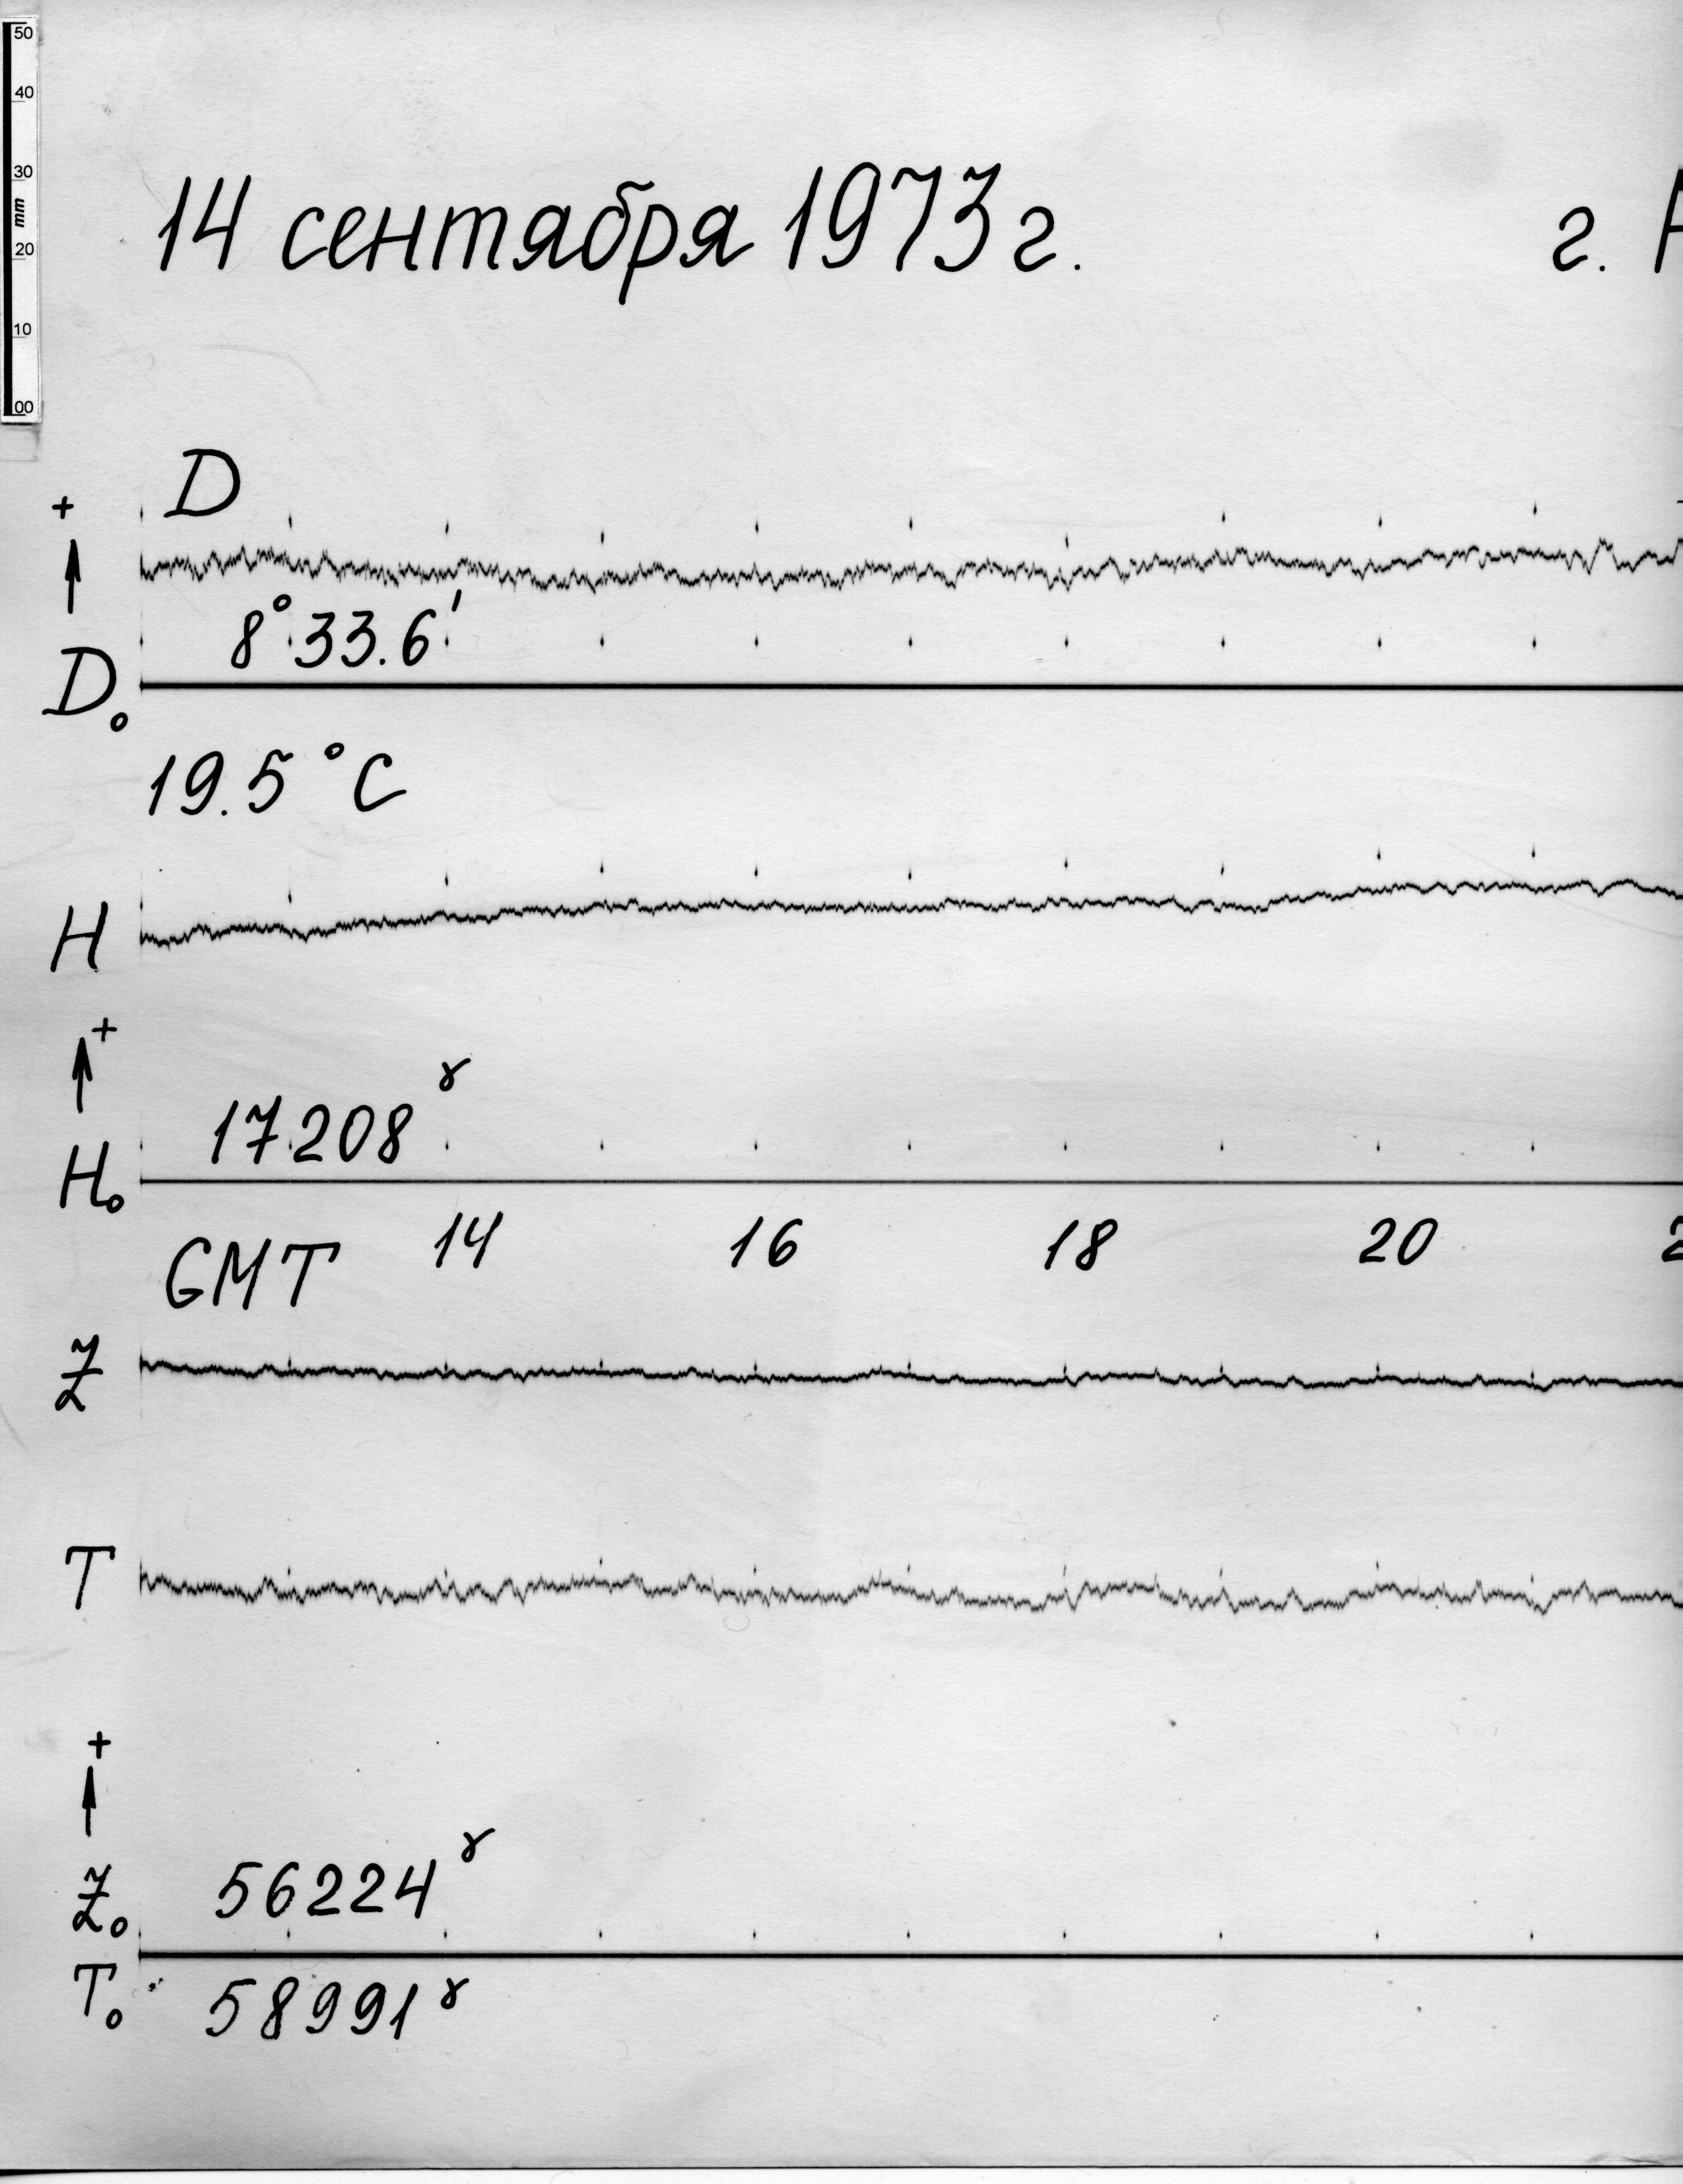 50
40
30
mm
20
10
00
14 сентября 1973 г. г.
D
+
8° 33.6'
D₀
19.5 °C
H
+
17208 γ
H₀
14 16 18 20
GMT
Z
T
+
56224 γ
Z₀
T₀ 58991 γ